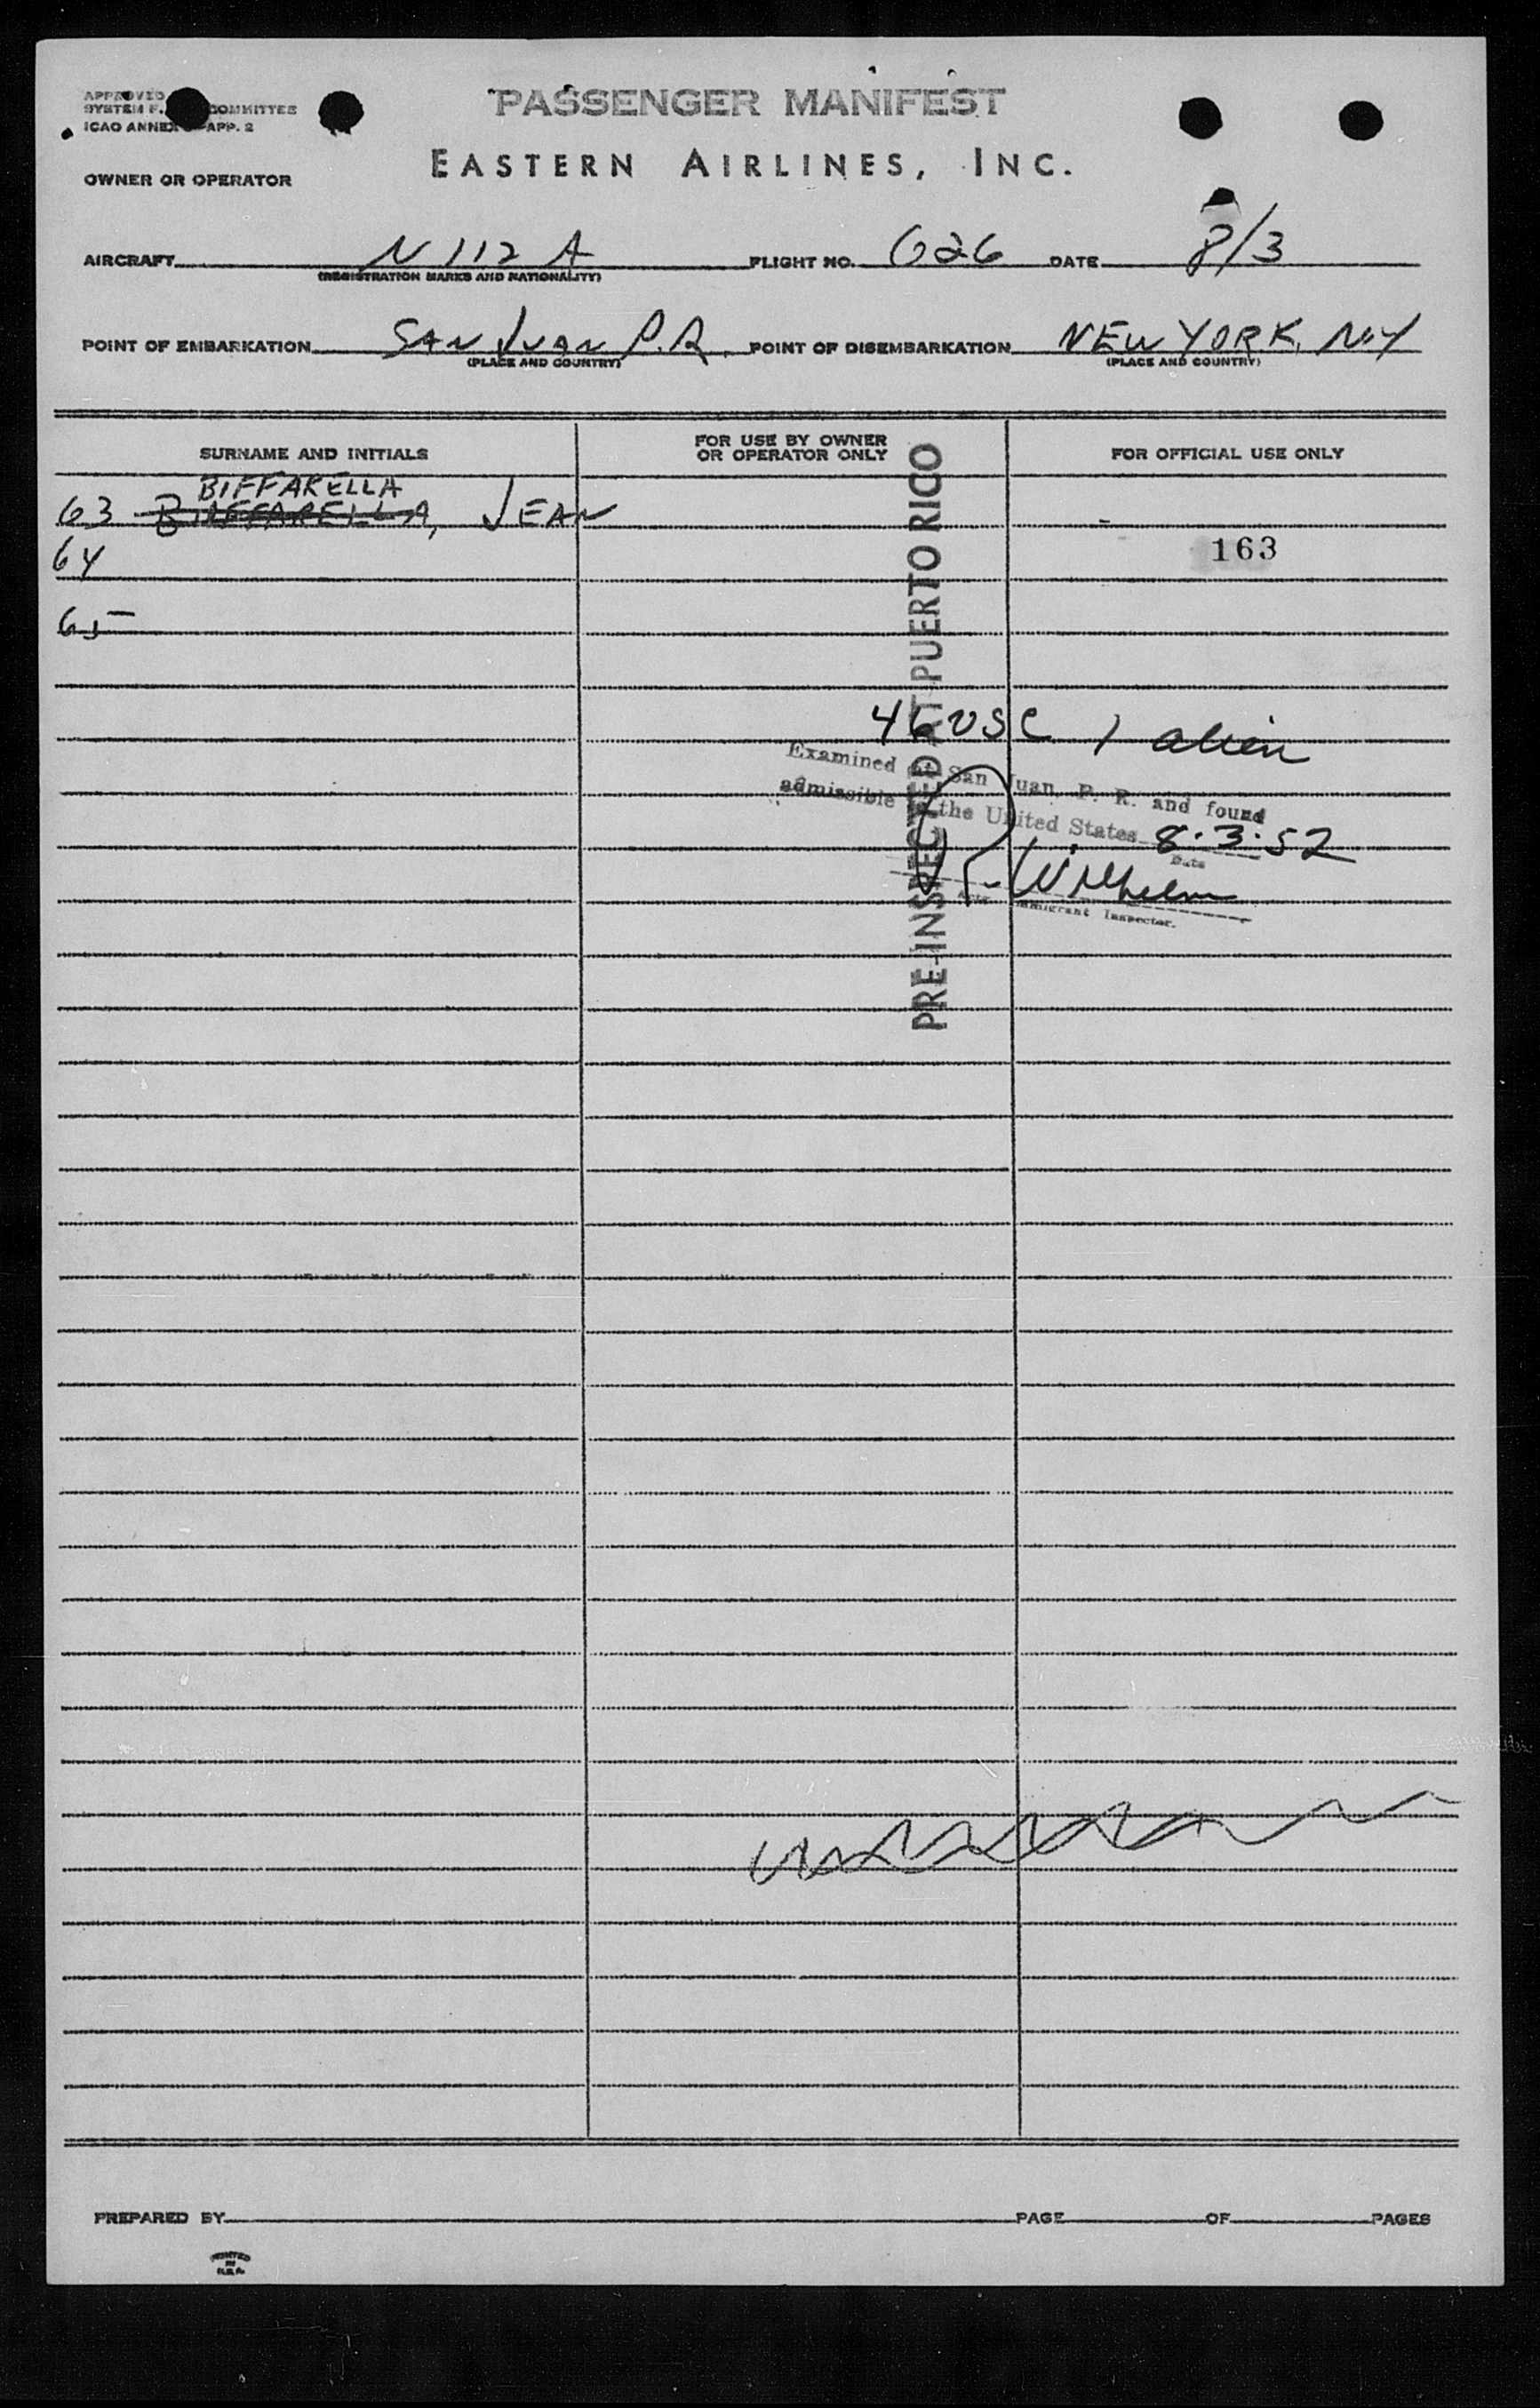 PASSENGER MANIFEST
APPROVED
SYSTEM COMMITTEE
ICAO ANNEX APP. 2
EASTERN AIRLINES, INC.
OWNER OR OPERATOR
AIRCRAFT N 112 A FLIGHT NO. 626 DATE 8/3
(REGISTRATION MARKS AND NATIONALITY)
POINT OF EMBARKATION SAN JUAN P.R. POINT OF DISEMBARKATION NEW YORK, N.Y
(PLACE AND COUNTRY) (PLACE AND COUNTRY)
SURNAME AND INITIALS FOR USE BY OWNER OR OPERATOR ONLY FOR OFFICIAL USE ONLY
BIFFARELLA
63 JEAN
64
163
65
PRE-INSPECTED AT PUERTO RICO
46 USC 1 alien
Examined at San Juan, P. R. and found
admissible to the United States 8.3.52
Date
Wilhelm
Immigrant Inspector.
PREPARED BY PAGE OF PAGES
PRINTED
IN
U.S.A.